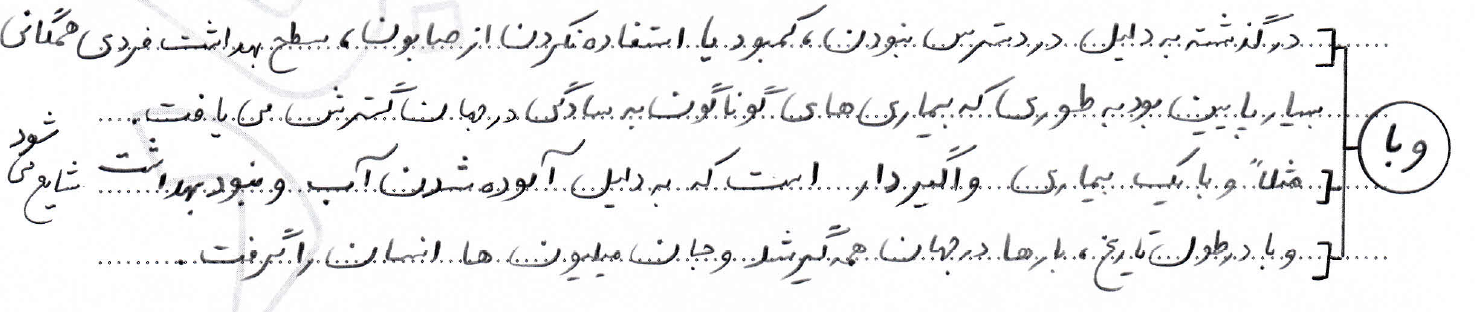 وبا
در گذشته به دلیل در دسترس نبودن، کمبود یا استفاده نکردن از صابون، سطح بهداشت فردی همگانی
بسیار پایین بود به طوری که بیماری های گوناگون به سادگی در جهان گسترش می یافت.
مثلاً وبا یک بیماری واگیردار است که به دلیل آلوده شدن آب و نبود بهداشت شایع می شود
وبا در طول تاریخ، بارها در جهان همه گیر شد و جان میلیون ها انسان را گرفت.